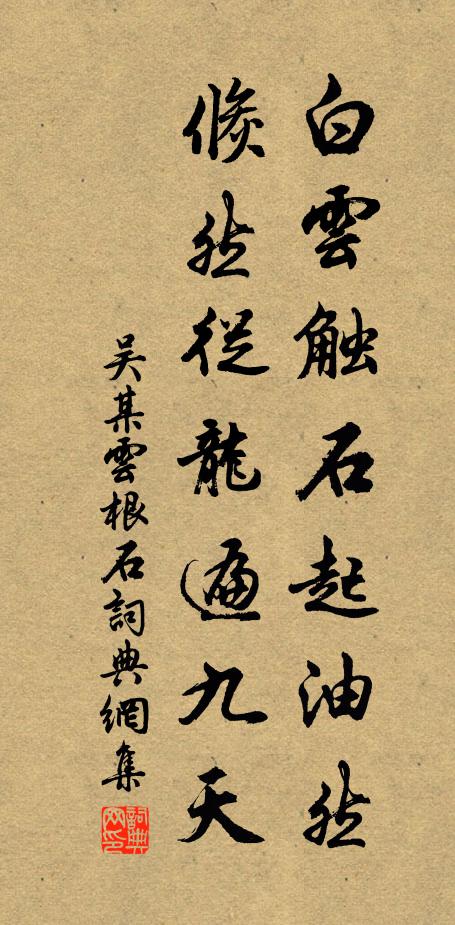 白雲触石起油然
倐然從龍遍九天
吴某雲根石詞典網集
詞典网印